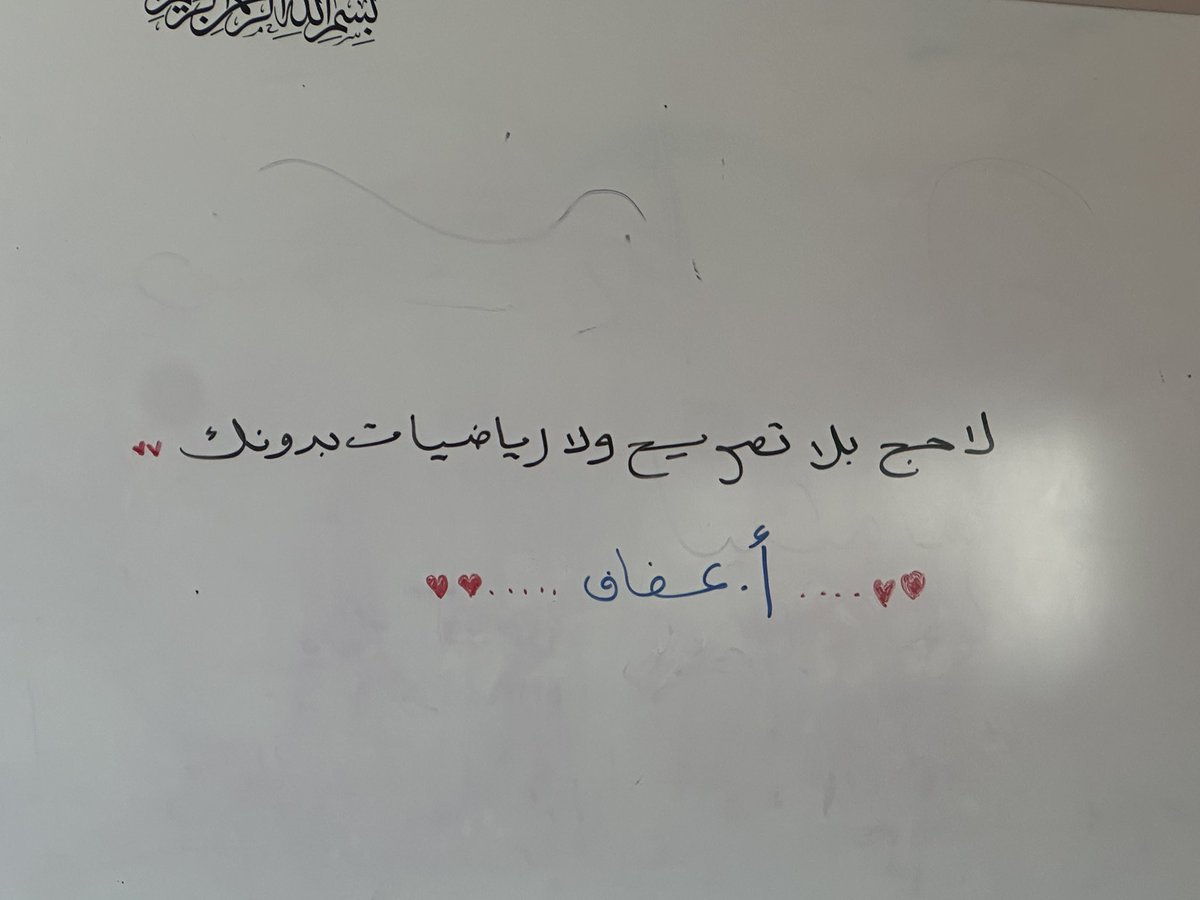 بسم الله الرحمن الرحيم
لا حج بلا تصريح ولا رياضيات بدونك ♥♥
♥♥ .... أ. عفاف ..... ♥♥